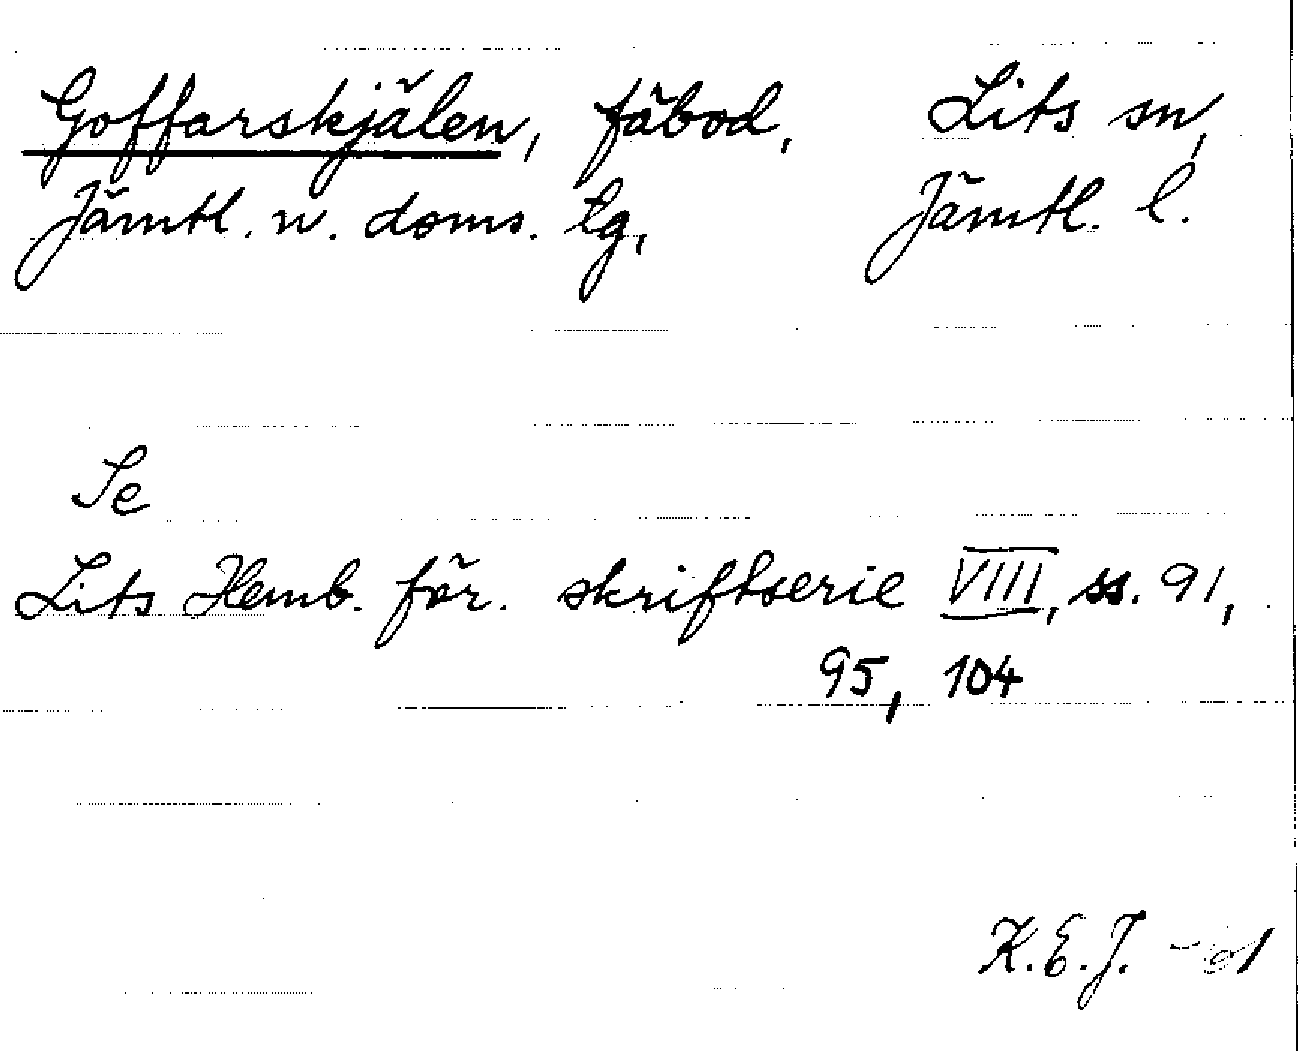 Goffarskjälen, fäbod, Lits sn,
Jämtl. n. doms. tg, Jämtl. l.
Se
Lits Hemb. för. skriftserie VIII, ss. 91,
95, 104
K.E.J.